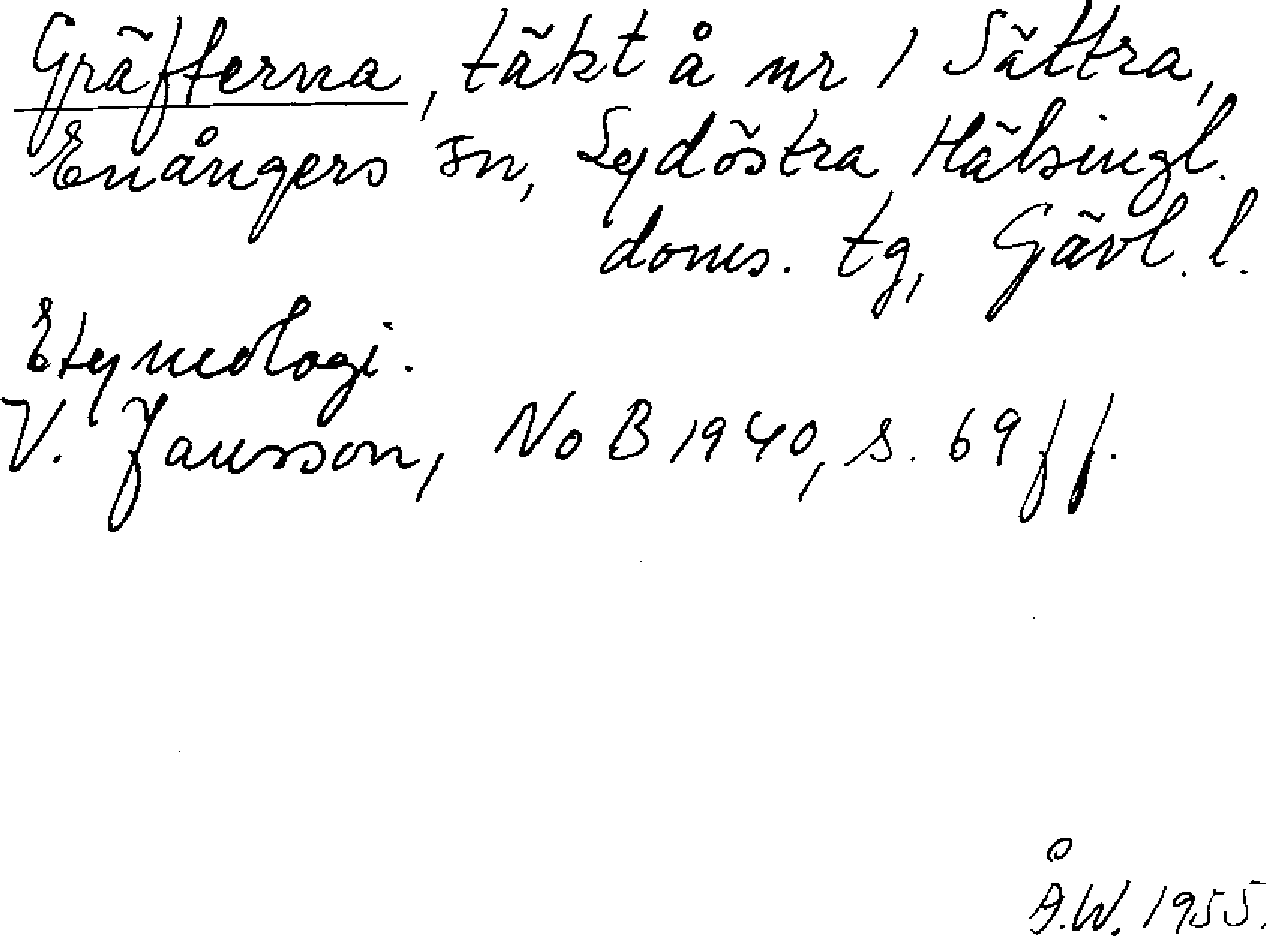 Gräfterna, täkt å nr 1 Sättra,
Enångers sn, Sydöstra Hälsingl.
doms. tg, Gävl. l.
Etymologi.
V. Jansson, NoB 1940, s. 69 ff.
Å.W. 1955.